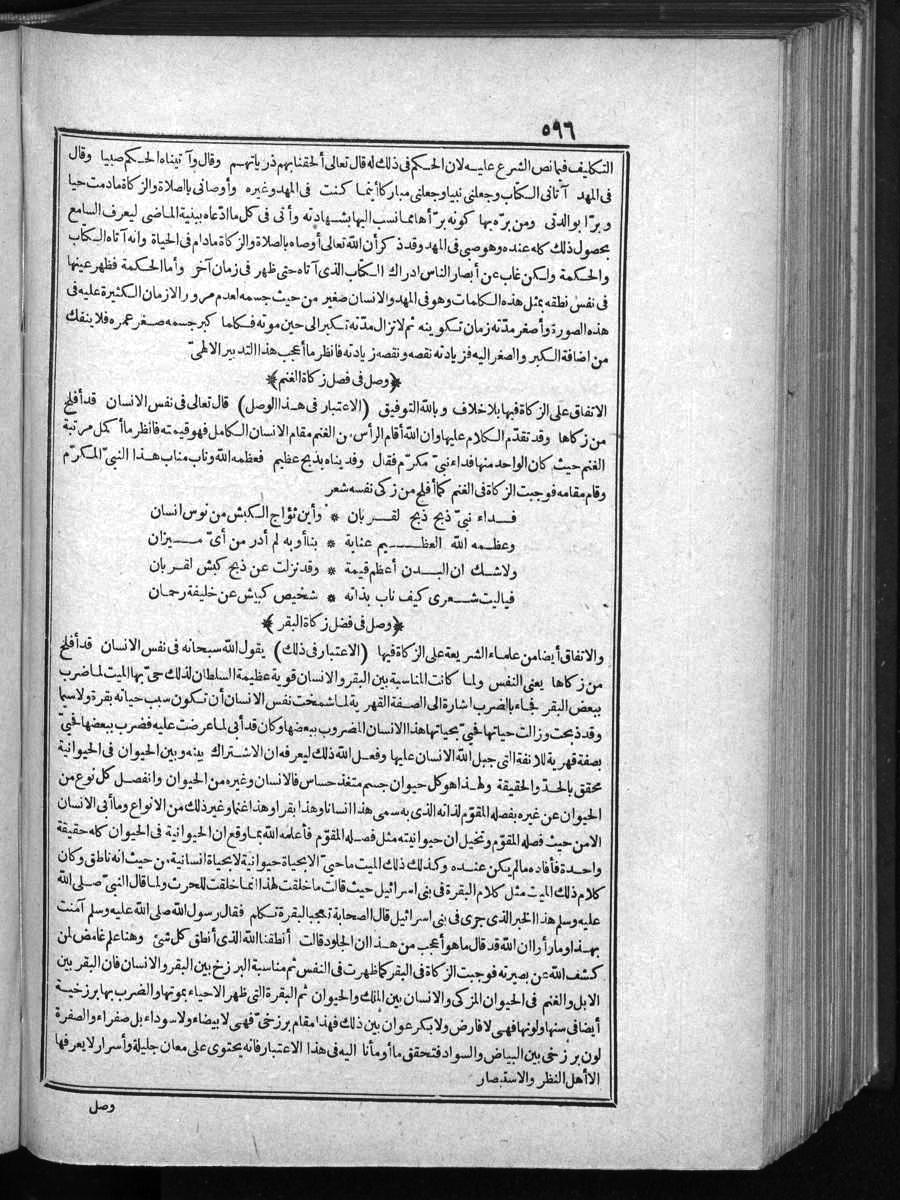 ٥٩٦
التكليف فيما نص الشرع عليه لان الحكم فى ذلك له قال تعالى ألحقنا بهم ذرياتهم وقال وآتيناه الحكم صبيا وقال
فى المهد آتانى الكتاب وجعلنى نبيا وجعلنى مباركا أينما كنت فى المهد وغيره وأوصانى بالصلاة والزكاة مادمت حيا
وبرّا بوالدتى ومن برّه بها كونه برّأها مما نسب اليها بشهادته وأتى فى كل ما ادّعاه ببنية الماضى ليعرف السامع
بحصول ذلك كله عنده وهو صبى فى المهد وقد ذكر أن الله تعالى أوصاه بالصلاة والزكاة مادام فى الحياة وانه آتاه الكتاب
والحكمة ولكن غاب عن أبصار الناس ادراك الكتاب الذى آتاه حتى ظهر فى زمان آخر وأما الحكمة فظهر عينها
فى نفس نطقه بمثل هذه الكلمات وهو فى المهد والانسان صغير من حيث جسمه لعدم مرور الازمان الكثيرة عليه فى
هذه الصورة وأصغر مدّته زمان تكوينه ثم لا تزال مدّته تكبر الى حين موته فكلما كبر جسمه صغر عمره فلا ينفك
من اضافة الكبر والصغر اليه فزيادته نقصه ونقصه زيادته فانظر ما أعجب هذا التدبير الالهىّ
﴿وصل فى فصل زكاة الغنم﴾
الاتفاق على الزكاة فيها بلا خلاف وبالله التوفيق (الاعتبار فى هذا الوصل) قال تعالى فى نفس الانسان قد أفلح
من زكاها وقد تقدّم الكلام عليها وان الله أقام الرأس من الغنم مقام الانسان الكامل فهو قيمته فانظر ما أكمل مرتبة
الغنم حيث كان الواحد منها فداء نبىّ مكرّم فقال وفديناه بذبح عظيم فعظمه الله وناب مناب هذا النبىّ المكرّم
وقام مقامه فوجبت الزكاة فى الغنم كما أفلح من زكى نفسه شعر
فداء نبىّ ذبح ذبح لقربان * وأين ثؤاج الكبش من نوس انسان
وعظمه الله العظيم عناية * بنا أو به لم أدر من أىّ ميزان
ولا شك ان البدن أعظم قيمة * وقد نزلت عن ذبح كبش لقربان
فياليت شعرى كيف ناب بذاته * شخيص كبيش عن خليفة رحمان
﴿وصل فى فضل زكاة البقر﴾
والاتفاق أيضا من علماء الشريعة على الزكاة فيها (الاعتبار فى ذلك) يقول الله سبحانه فى نفس الانسان قد أفلح
من زكاها يعنى النفس ولما كانت المناسبة بين البقر والانسان قوية عظيمة السلطان لذلك حىّ بها الميت لما ضرب
ببعض البقر فجاء بالضرب اشارة الى الصفة القهرية لما شمخت نفس الانسان أن تكون سبب حياته بقرة ولا سيما
وقد ذبحت وزالت حياتها فحيى بحياتها هذا الانسان المضروب ببعضها وكان قد أبى لما عرضت عليه فضرب ببعضها فحيى
بصفة قهرية للانفة التى جبل الله الانسان عليها وفعل الله ذلك ليعرفه ان الاشتراك بينه وبين الحيوان فى الحيوانية
محقق بالحدّ والحقيقة ولهذا هو كل حيوان جسم متغذ حساس فالانسان وغيره من الحيوان وانفصل كل نوع من
الحيوان عن غيره بفصله المقوّم لذاته الذى به سمى هذا انسانا وهذا بقرا وهذا غنما وغير ذلك من الانواع وما أبى الانسان
الا من حيث فصله المقوّم وتخيل ان حيوانيته مثل فصله المقوّم فأعلمه الله بما وقع ان الحيوانية فى الحيوان كله حقيقة
واحدة فأفاده ما لم يكن عنده وكذلك ذلك الميت ما حيىّ الا بحياة حيوانية لا بحياة انسانية من حيث انه ناطق وكان
كلام ذلك الميت مثل كلام البقرة فى بنى اسرائيل حيث قالت ما خلقت لهذا انما خلقت للحرث ولما قال النبىّ صلى الله
عليه وسلم هذا الخبر الذى جرى فى بنى اسرائيل قال الصحابة تعجبا أبقرة تكلم فقال رسول الله صلى الله عليه وسلم آمنت
بهذا وما رأوا ان الله قد قال ما هو أعجب من هذا ان الجلود قالت أنطقنا الله الذى أنطق كل شئ وهنا علم غامض لمن
كشف الله عن بصيرته فوجبت الزكاة فى البقر كما ظهرت فى النفس ثم مناسبة البرزخ بين البقر والانسان فان البقر بين
الابل والغنم فى الحيوان المزكى والانسان بين الملك والحيوان ثم البقرة التى ظهر الاحياء بموتها والضرب بها برزخية
أيضا فى سنها ولونها فهى لا فارض ولا بكر عوان بين ذلك فهذا مقام برزخىّ فهى لا بيضاء ولا سوداء بل صفراء والصفرة
لون برزخى بين البياض والسواد فتحقق ما أومأنا اليه فى هذا الاعتبار فانه يحتوى على معان جليلة وأسرار لا يعرفها
الا أهل النظر والاستبصار
وصل